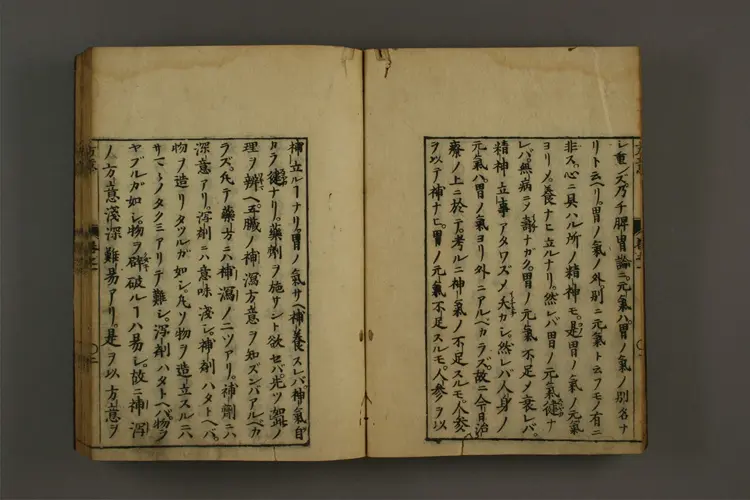 レ重ンズ乃チ脾胃論ニ元氣ハ胃ノ氣ノ別名ナ
リト云ヘリ胃ノ氣ノ外別ニ元氣ト云フモノ有ニ
非ズ心ニ具ハル所ノ精神モ是胃ノ氣ノ元氣
ヨリメ養ナヒ立ルナリ然レバ胃ノ元氣健ナ
レバ無病ニメ壽ナガク胃ノ元氣不足メ衰レバ
精神立事アタワズメ夭カシ然レバ人身ノ
元氣ハ胃ノ氣ヨリ外ニアルベカラズ故ニ今日治
療ノ上ニ於テ考ルニ神氣ノ不足スルモ人參
ヲ以テ補ナヒ胃ノ元氣不足スルモ人參ヲ以
補立ルーナリ胃ノ氣サヘ補養スレバ神氣自
カラ健ナリ藥劑ヲ施サント欲セバ先ツ
理ヲ辨ヘ五臟ノ補瀉方意ヲ知ズンバアルベカ
ラズ凡テ藥方ニハ補瀉ノ二ツアリ補劑ニハ
深意アリ瀉劑ニハ意味淺シ補劑ハタトヘバ
物ノ造リタツルガ如シ凡ソ物ヲ造立スルニハ
サマ〳〵ノタクミアリテ難シ瀉劑ハタトヘバ物ヲ
ヤブルガ如シ物ヲ碎破ルーハ易シ故ニ補瀉
ノ方意淺深難易アリ是ヲ以方意ヲ